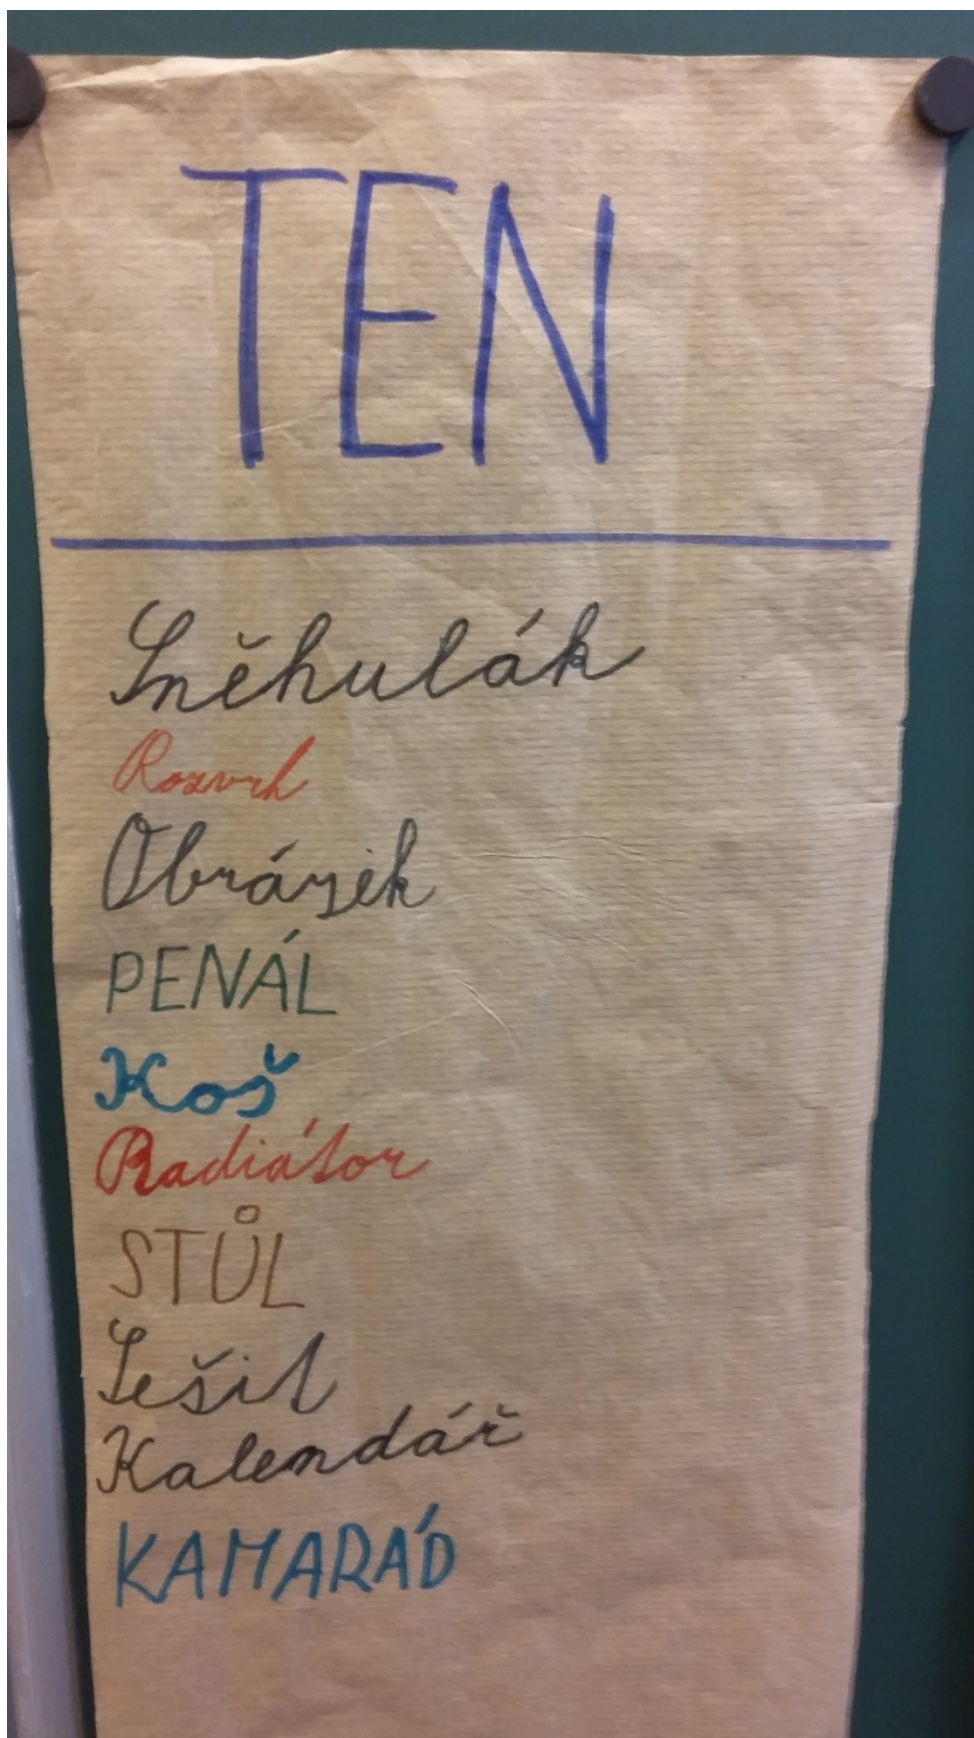 TEN
Sněhulák
Rozvrh
Obrázek
PENÁL
Koš
Radiátor
STŮL
Sešit
Kalendář
KAMARÁD